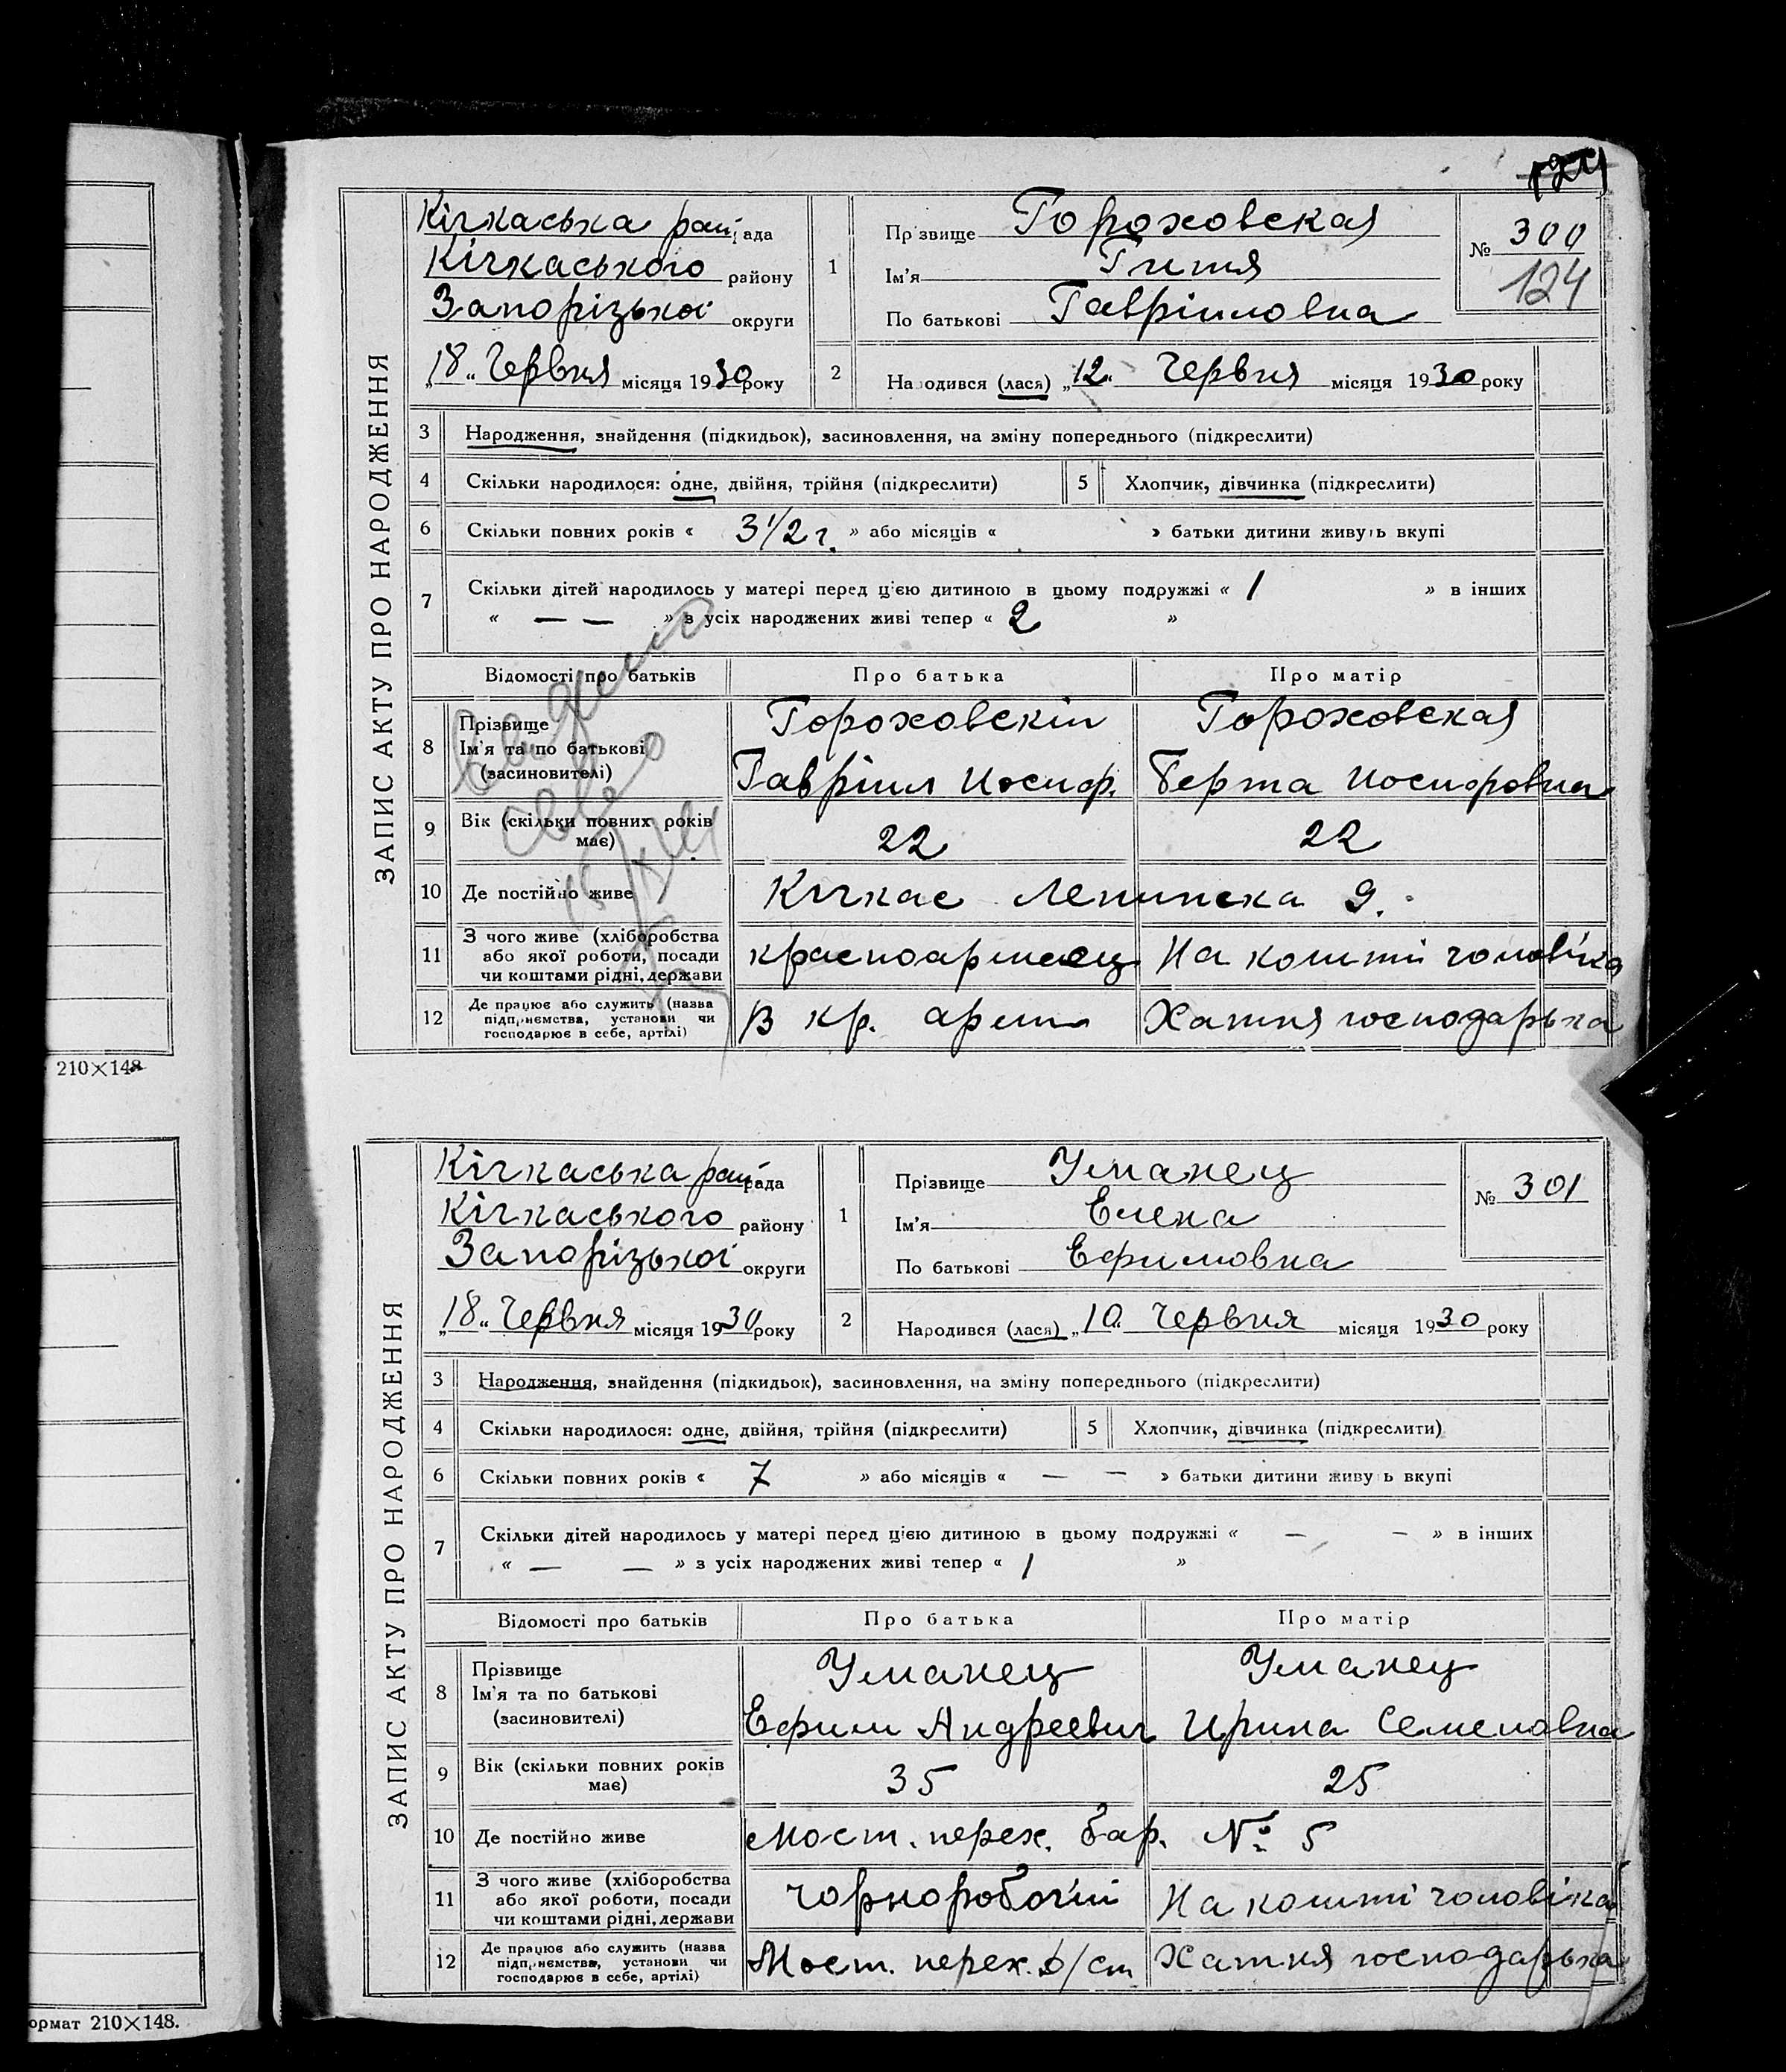 124
Кічкаська рай рада
Кічкаського району
Запорізької округи
„18„ Червня місяця 1930 року
1
Прізвище Гороховская
Ім'я Гитя
По батькові Гавріиловна
№ 300
124
2
Народився (лася) „12„ Червня місяця 1930 року
ЗАПИС АКТУ ПРО НАРОДЖЕННЯ
3 Народження, знайдення (підкидьок), засиновлення, на зміну попереднього (підкреслити)
4 Скільки народилося: одне, двійня, трійня (підкреслити)
5 Хлопчик, дівчинка (підкреслити)
6 Скільки повних років « 3 1/2 г. » або місяців « » батьки дитини живуть вкупі
7 Скільки дітей народилось у матері перед цією дитиною в цьому подружжі « 1 » в інших
« — — » з усіх народжених живі тепер « 2 »
Відомості про батьків Про батька Про матір
8 Прізвище
Ім'я та по батькові
(засиновителі)
Гороховскій
Гавріил Иосиф.
Гороховская
Берта Иосифовна
9 Вік (скільки повних років
має)
22 22
10 Де постійно живе Кічкас Ленинска 9.
11 З чого живе (хліборобства
або якої роботи, посади
чи коштами рідні, держави
красноармеец На кошті чоловіка
12 Де працює або служить (назва
підприємства, установи чи
господарює в себе, артілі)
В кр. армии Хатня господарька
210×148
Кічкаська рай рада
Кічкаського району
Запорізької округи
„18„ Червня місяця 1930 року
1
Прізвище Уманец
Ім'я Елена
По батькові Ефимовна
№ 301
2
Народився (лася) „10„ Червня місяця 1930 року
ЗАПИС АКТУ ПРО НАРОДЖЕННЯ
3 Народження, знайдення (підкидьок), засиновлення, на зміну попереднього (підкреслити)
4 Скільки народилося: одне, двійня, трійня (підкреслити)
5 Хлопчик, дівчинка (підкреслити)
6 Скільки повних років « 7 » або місяців « — — » батьки дитини живуть вкупі
7 Скільки дітей народилось у матері перед цією дитиною в цьому подружжі « — — » в інших
« — — » з усіх народжених живі тепер « 1 »
Відомості про батьків Про батька Про матір
8 Прізвище
Ім'я та по батькові
(засиновителі)
Уманец
Ефим Андреевич
Уманец
Ирина Семеновна
9 Вік (скільки повних років
має)
35 25
10 Де постійно живе Мост. перех. бар. № 5
11 З чого живе (хліборобства
або якої роботи, посади
чи коштами рідні, держави
чорноробочій На кошті чоловіка
12 Де працює або служить (назва
підприємства, установи чи
господарює в себе, артілі)
Мост. перех. Д/ст Хатня господарька
ормат 210×148.